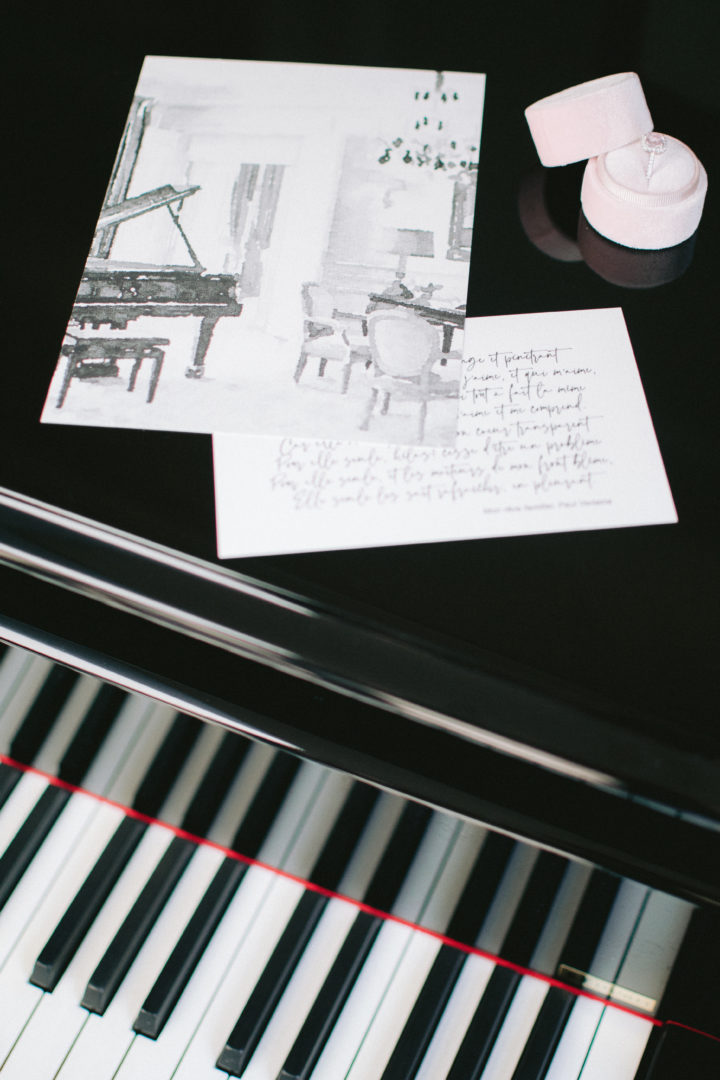 ge et pénétrant
j'aime, et qui m'aime,
i tout à fait la même
aime et me comprend.
on coeur transparent
Car elle
Pour elle seule, hélas! cesse d'être un problème
Pour elle seule, et les moiteurs de mon front blême,
Elle seule les sait rafraîchir, en pleurant
Mon rêve familier, Paul Verlaine